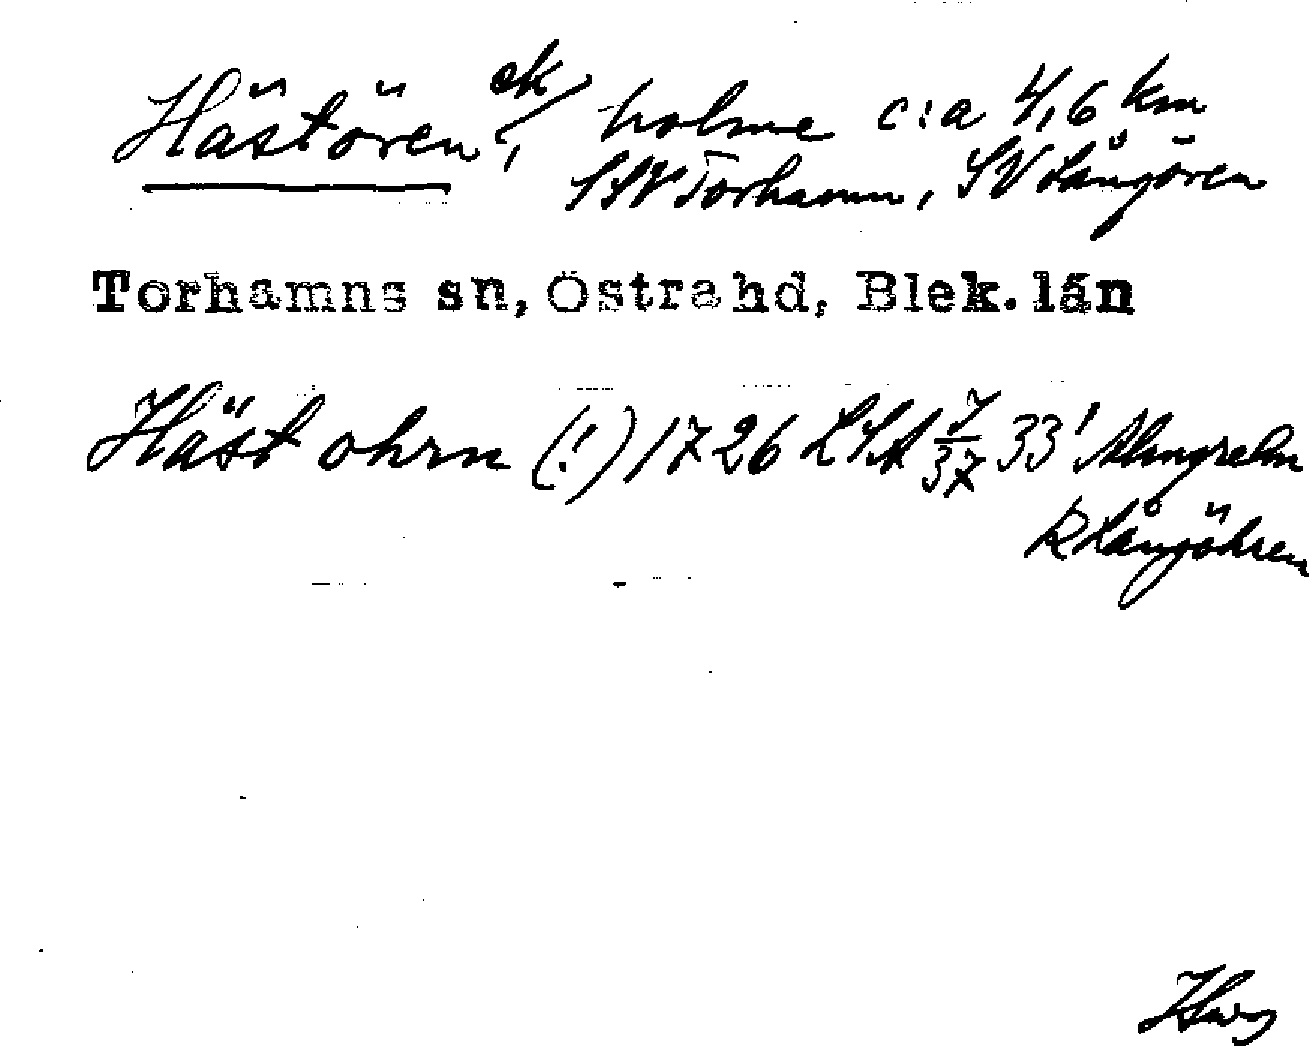 Hästören, ek holme c:a 4,6 km
SSV Torhamn, SV Långören
Torhamns sn, Östra hd, Blek. län
Häst ohrn (!) 1726 LSA 7/37 33'
R Långöhren